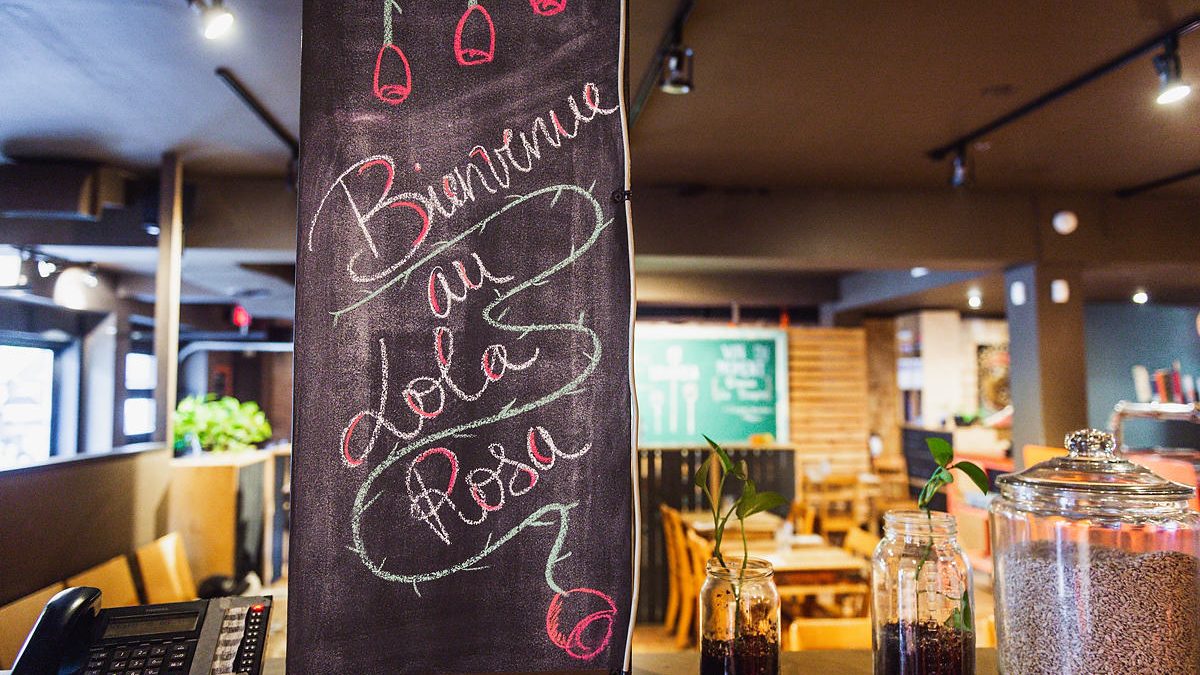 Bienvenue
au
Lola
Rosa